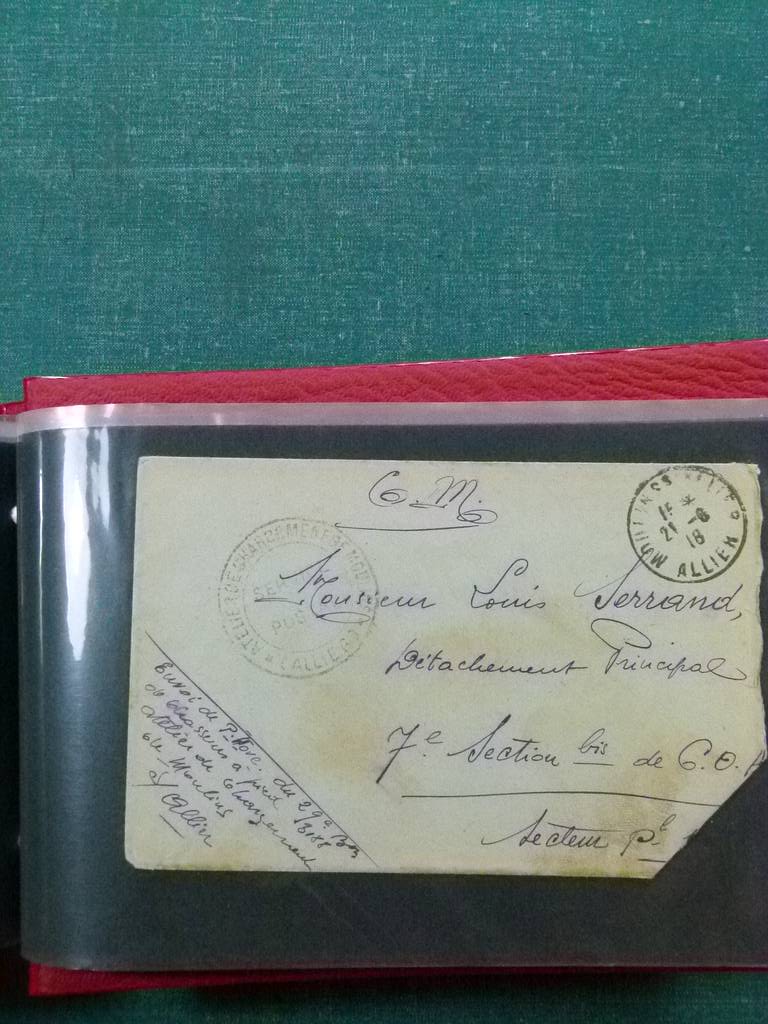 C. M.
MOULINS S ALLIER
15 *
21 -6
18
ALLIER
ATELIER DE CHARGEMENT DE MOU
(ALLIER)
Monsieur Louis Serrand,
Détachement Principal
7e Section bis de C.O.A
Secteur pal
Envoi de du 29e Bon
de chasseurs à pied
atelier de chargement
de Moulins
s/ Allier